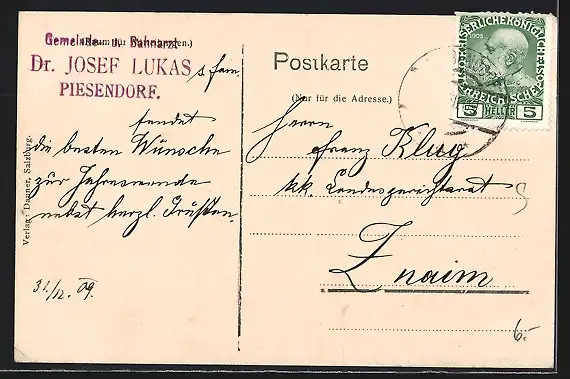 Gemeinde- u. Bahnarzt
(Raum für Mitteilungen.)
Dr. JOSEF LUKAS
PIESENDORF.
s fam.
sendet
die besten Wünsche
zur Jahreswende
nebst herzl. Grüßen.
31./12. 09.
Verlag: Dauner, Salzburg.
Postkarte
(Nur für die Adresse.)
Herrn
Franz Klug
kk. Landesgerichtsrat
Znaim
KAISERLICHEKÖNIGLICHE
ÖSTERREICHISCHE POST
1908
5 HELLER 5
6.-